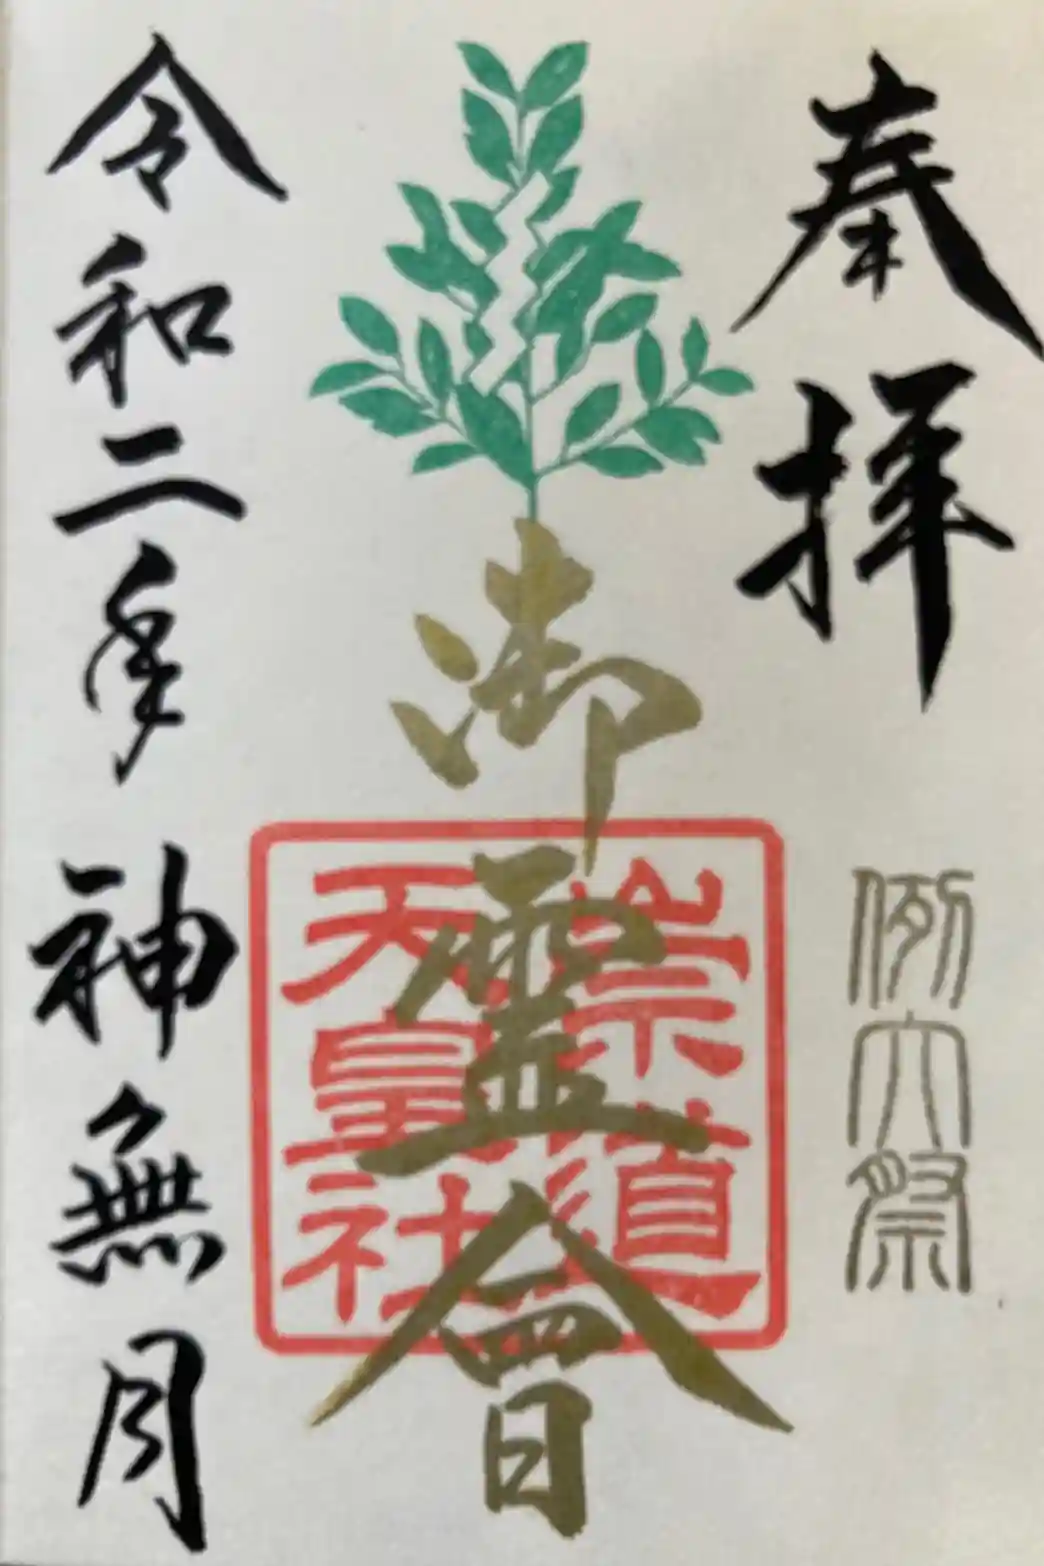 奉拝
例大祭
御霊會
崇道
天皇社
令和二年 神無月